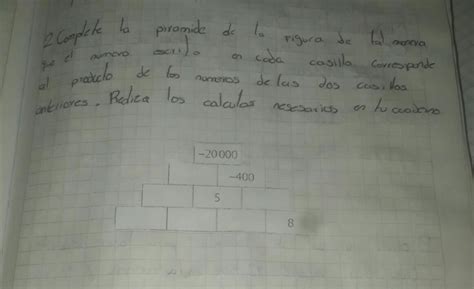 2. Complete la piramide de la figura de tal manera
que el número escrito en cada casilla corresponde
al producto de los numeros de las dos casillas
anteriores. Realice los calculos nesesarios en tu cuaderno
-20000
-400
5
8